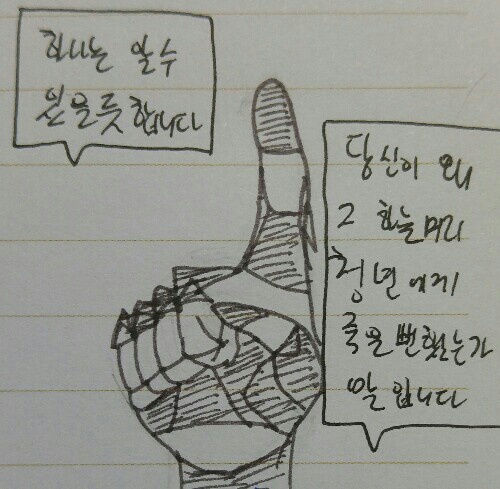 하나는 알 수
있을 듯 합니다
당신이 왜
그 하늘머리
청년에게
죽을 뻔 했는가
말입니다